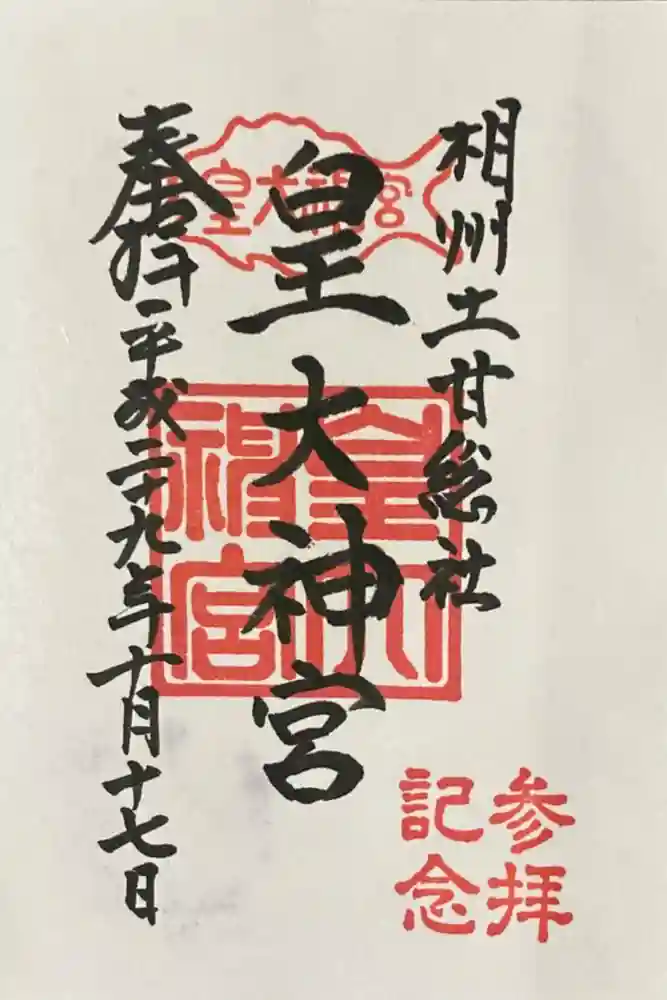 相州土甘総社
皇大神宮
皇大神宮
皇大神宮
奉拝 平成二十九年十月十七日
参拝
記念